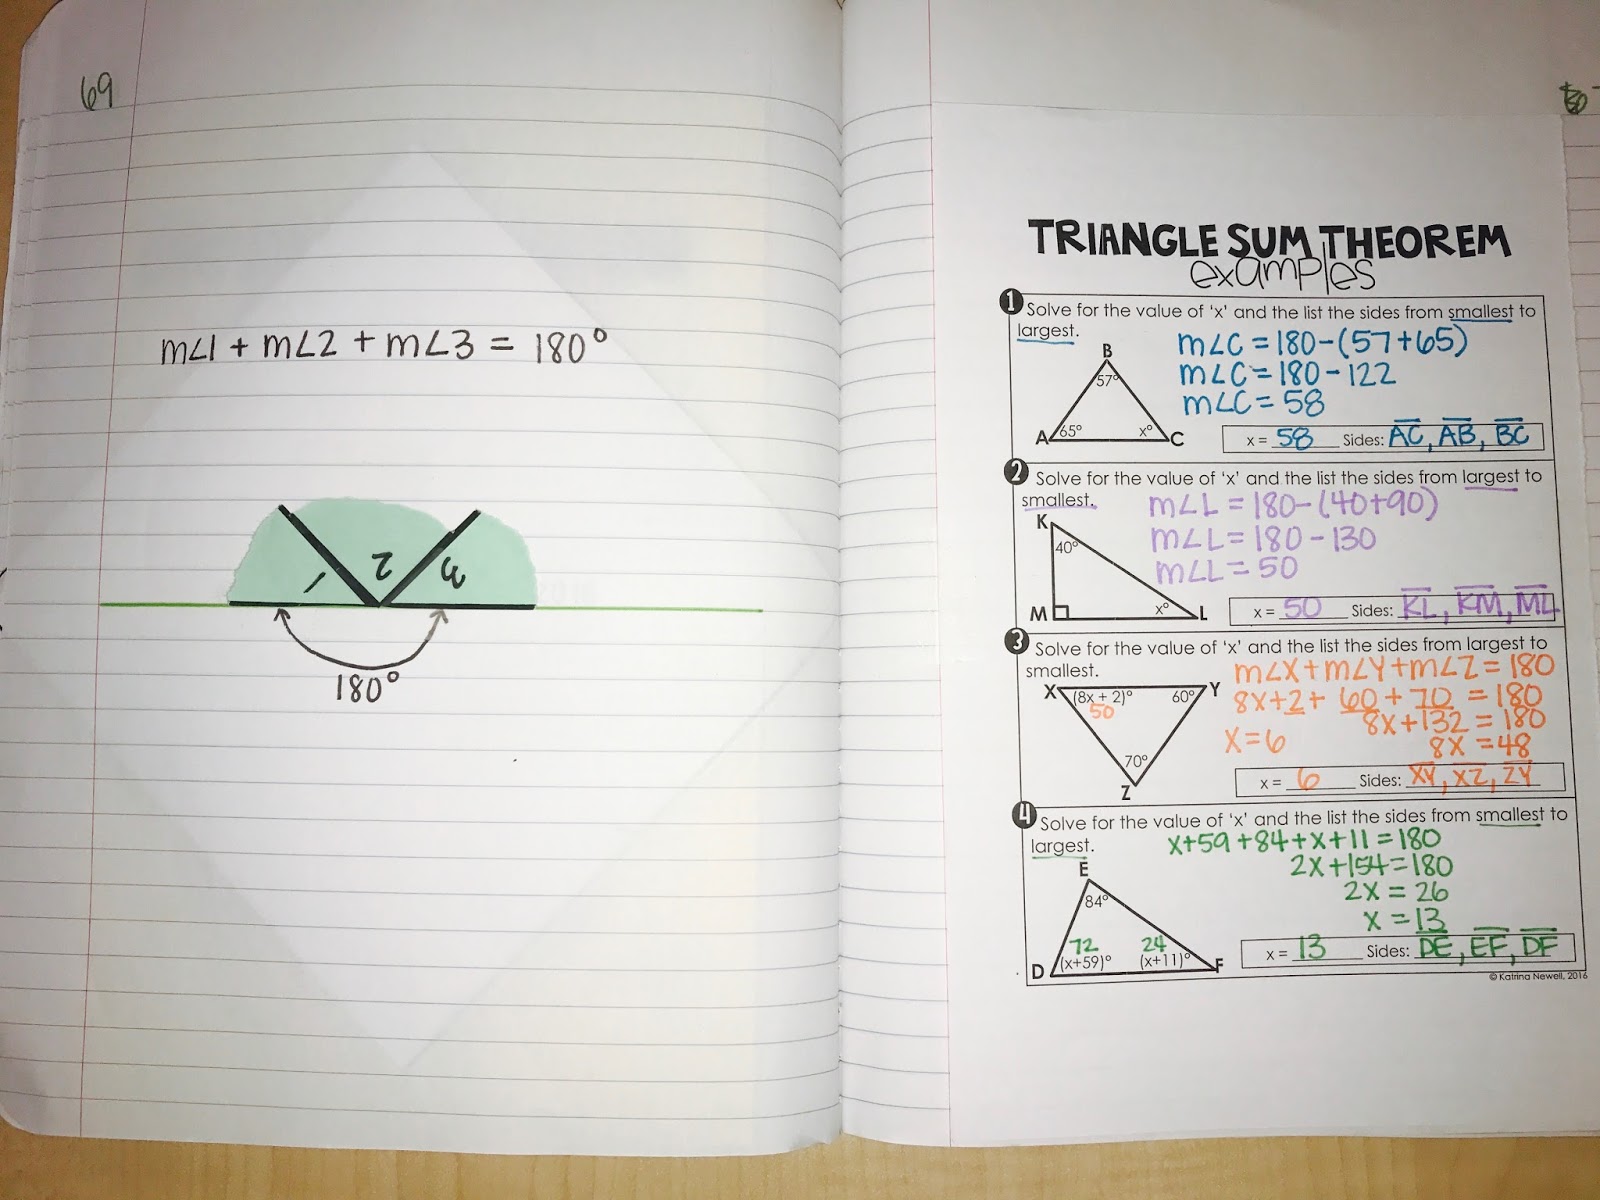 69
m∠1 + m∠2 + m∠3 = 180°
1 2 3
180°
TRIANGLE SUM THEOREM
examples
1 Solve for the value of 'x' and the list the sides from smallest to
largest.
m∠C = 180-(57+65)
m∠C = 180-122
m∠C = 58
B
57°
A 65° x° C
x = 58 Sides: AC, AB, BC
2 Solve for the value of 'x' and the list the sides from largest to
smallest.
m∠L = 180-(40+90)
m∠L = 180-130
m∠L = 50
K
40°
M x° L
x = 50 Sides: KL, KM, ML
3 Solve for the value of 'x' and the list the sides from largest to
smallest.
m∠X+m∠Y+m∠Z = 180
8x+2+ 60+70 = 180
8x+132 = 180
8x = 48
x=6
X (8x + 2)° 60° Y
50
70°
Z
x = 6 Sides: XY, XZ, ZY
4 Solve for the value of 'x' and the list the sides from smallest to
largest.
x+59+84+x+11 = 180
2x+154=180
2x = 26
x = 13
E
84°
72 24
D (x+59)° (x+11)° F
x = 13 Sides: DE, EF, DF
© Katrina Newell, 2016